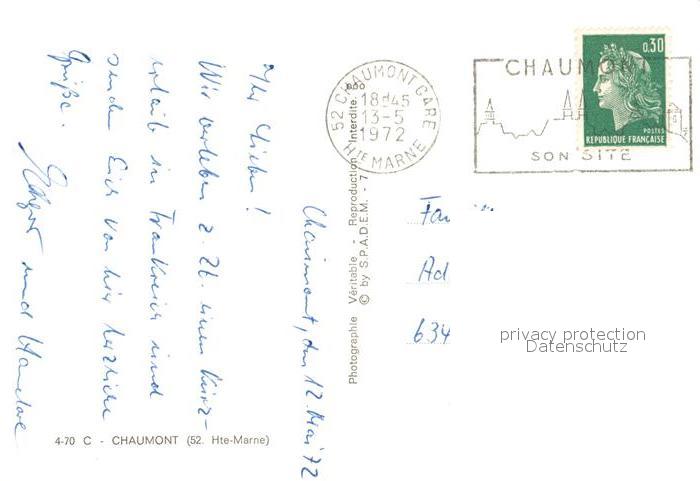 Chaumont, den 12. Mai 72
Ihr Lieben!
Wir verleben z. Zt. einen Kurz-
urlaub in Frankreich und
senden Euch von hier herzliche
Grüße.
und
4-70 C - CHAUMONT (52. Hte-Marne)
Photographie Véritable - Reproduction Interdite.
© by S.P.A.D.E.M. - 7
52 CHAUMONT GARE
18H45
13-5
1972
HTE MARNE
CHAUMONT
SON SITE
0,30
POSTES
REPUBLIQUE FRANÇAISE
Fa
Ad
634
privacy protection
Datenschutz